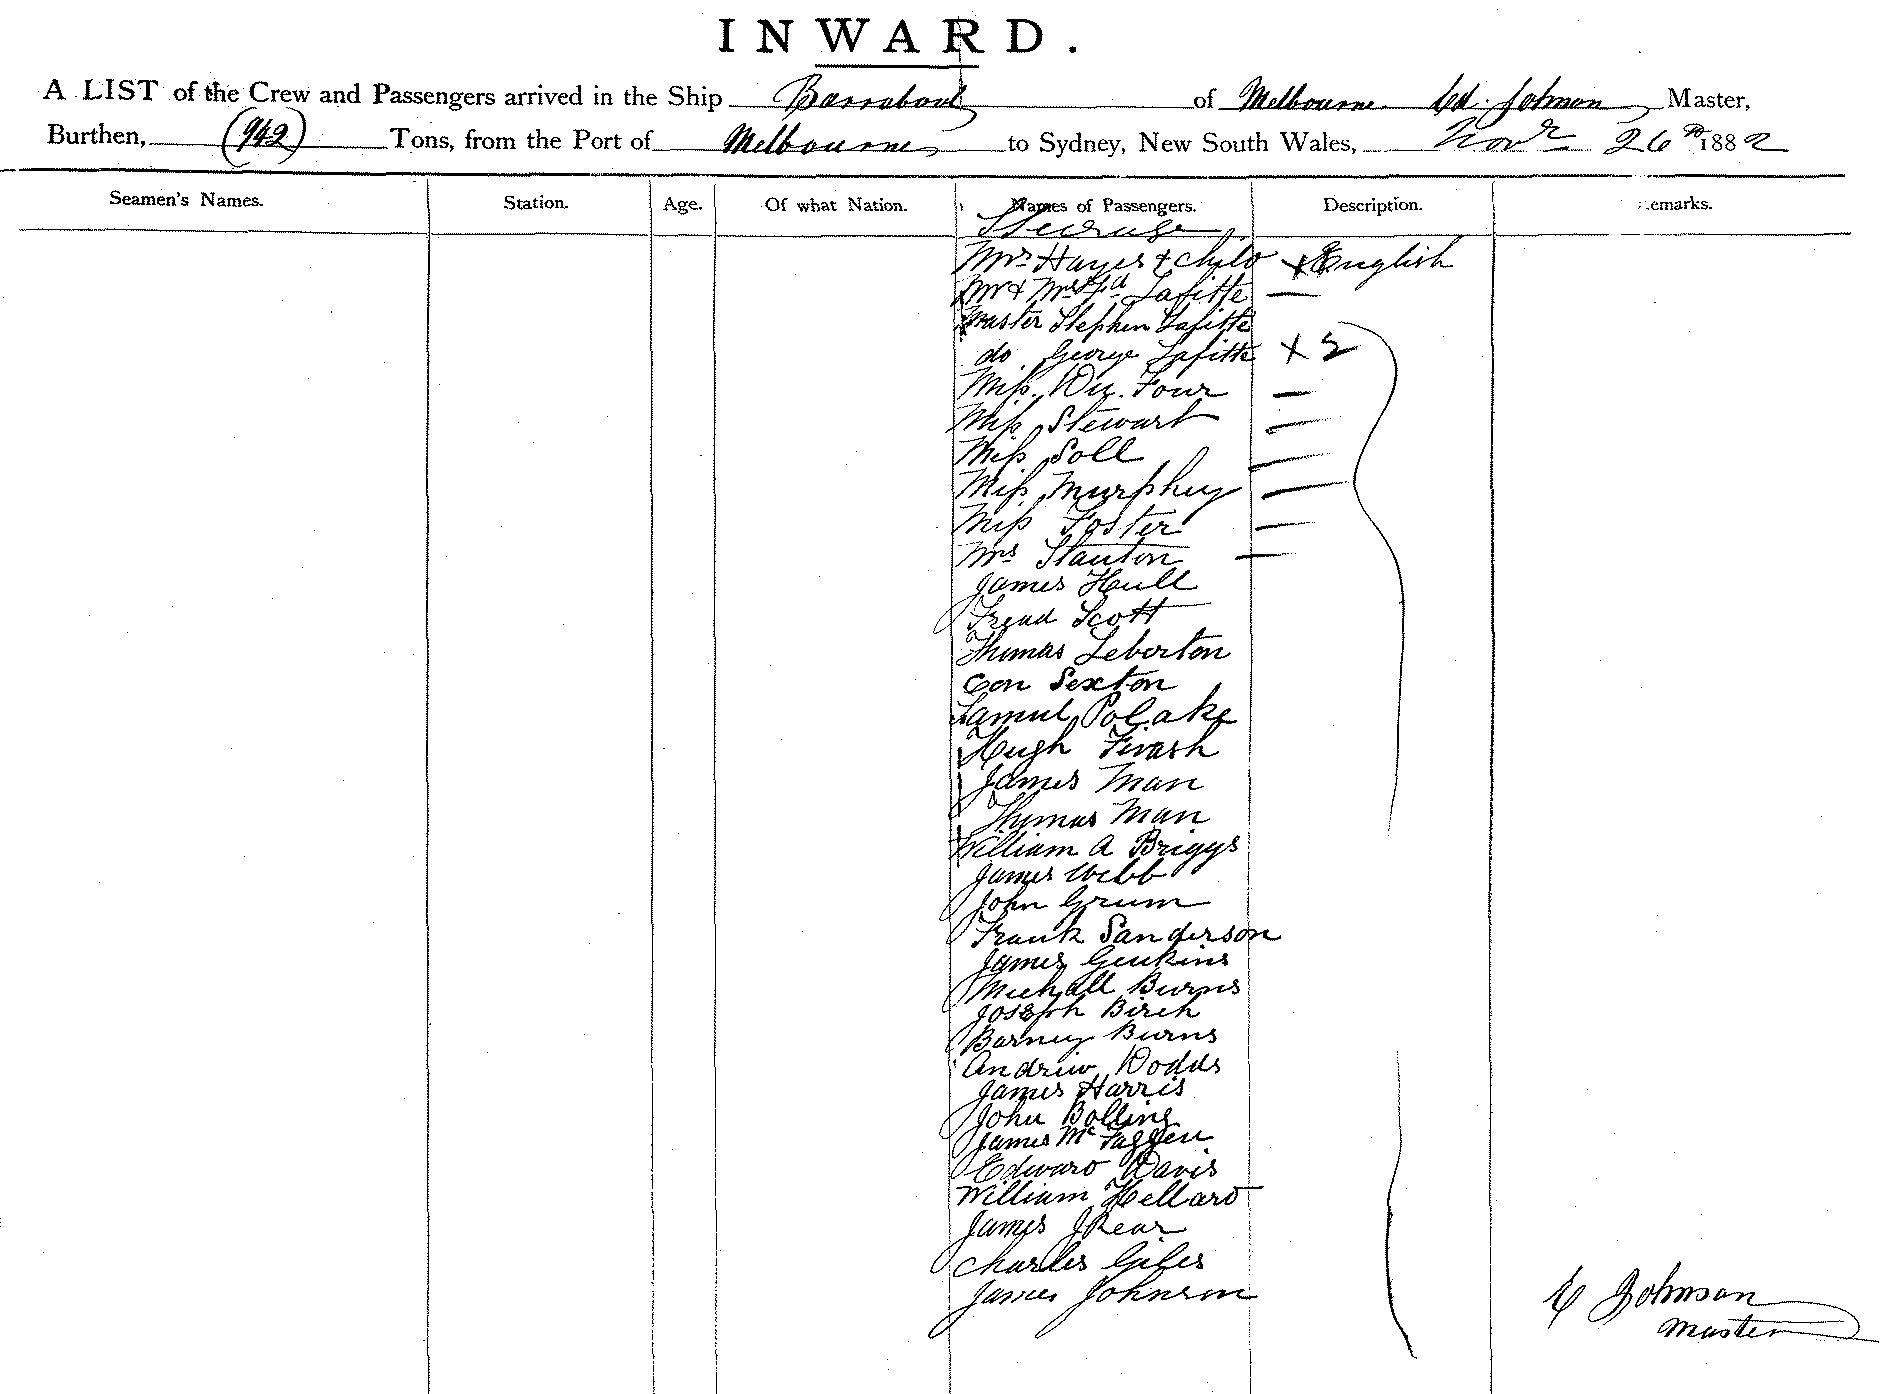 INWARD.
A LIST of the Crew and Passengers arrived in the Ship Barrabool of Melbourne Ed. Johnson, Master,
Burthen, (942) Tons, from the Port of Melbourne to Sydney, New South Wales, Novr 26th 1882
Seamen's Names. Station. Age. Of what Nation. Names of Passengers. Description. emarks.
Steerage
Mrs Hayes & Child x English
Mr & Mrs Lafitte —
Master Stephen Lafitte
do. George Lafitte x 2
Miss Du. Four —
Miss Stewart —
Miss Soll —
Miss Murphey —
Miss Foster —
Mrs Stanton —
James Hull
Fread Scott
Thomas Leberton
Con Sexton
Samul Polake
Hugh
James Man
Thomas Man
William A Briggs
James Webb
John Grum
Frank Sanderson
James Genkins
Michall Burns
Joseph Birch
Barney Burns
Andriw Dodds
James Harris
John Bolling
James McFaggen
Edward Davis
William Hellard
James
Charles Giles
James Johnson
E Johnson
Master